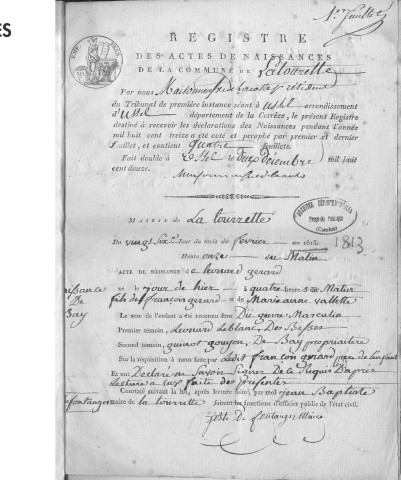 ES
1er feuillet
REGISTRE
DES ACTES DE NAISSANCES
DE LA COMMUNE DE Latourette
Par nous
du Tribunal de première instance séant à Ussel arrondissement
d'Ussel département de la Corrèze, le présent Registre
destiné à recevoir les déclarations des Naissances pendant l'année
mil huit cent treize a été coté et paraphé par premier et dernier
feuillet, et contient quatre feuillets.
Fait double à Ussel le deux décembre mil huit
cent douze.
MAIRIE de La tourrette
Du vingt six.e Jour du mois de fevrier an 1813.
Heure onze du Matin
1813
ACTE DE NAISSANCE de leonard gerard
né le jour de hier à quatre heures du Matin
fils de françois gerard et de Marie anne vallette
Le sexe de l'enfant a été reconnu être Du genre Masculin
naissance
De
Bay
Premier témoin, Leonard Leblanc, Des Besses
Second témoin, guinot goujon, De Bay propriétaire
Sur la réquisition à nous faite par Ledit françois gerard pere de lenfant
Et ont Déclaré ne Savoir Signer De ce Requis Daprès
Lecture a Eux faite des presentes
Constaté suivant la loi, après lecture faite, par moi jean Baptiste
Defontanges maire de la tourrette faisant les fonctions d'officier public de l'état civil.
D. fontanges Maire